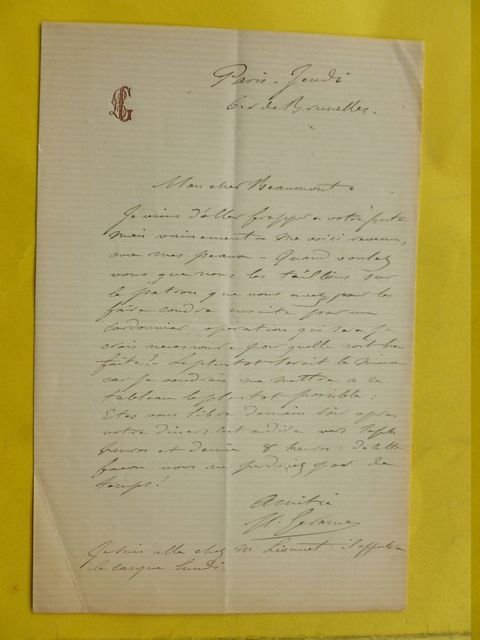 Paris - Jeudi
6. r de Bruxelles.
Mon cher Beaumont
Je viens d'aller frapper à votre porte
mais vainement - me voici revenu,
avec mes peaux - Quand voulez
vous que nous les taillions sur
le patron que vous avez pour les
faire coudre ensuite par un
cordonnier, opération qui sera je
crois nécessaire pour qu'elle soit bien
faite? - Le plus tot serait le mieux
car je voudrais me mettre a ce
tableau le plus tot possible:
Etes vous libre demain soir apres
votre diner, c'est a dire vers sept
heures et demie 8 heures; de cette
façon vous ne perdriez pas de
temps?
Amitié
Je suis allé chez M. Lionnet il
le casque lundi.